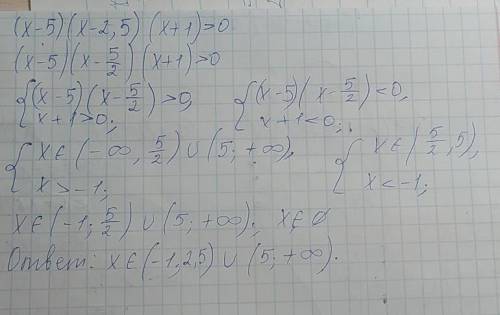 (x-5)(x-2,5)(x+1)>0
(x-5)(x-5/2)(x+1)>0
{(x-5)(x-5/2)>0, {(x-5)(x-5/2)<0,
x+1>0; x+1<0;
{x∈(-∞, 5/2)∪(5;+∞), {x∈(5/2,5),
x>-1; x<-1;
x∈(-1; 5/2)∪(5;+∞); x∈∅
Ответ: x∈(-1,2,5)∪(5;+∞).